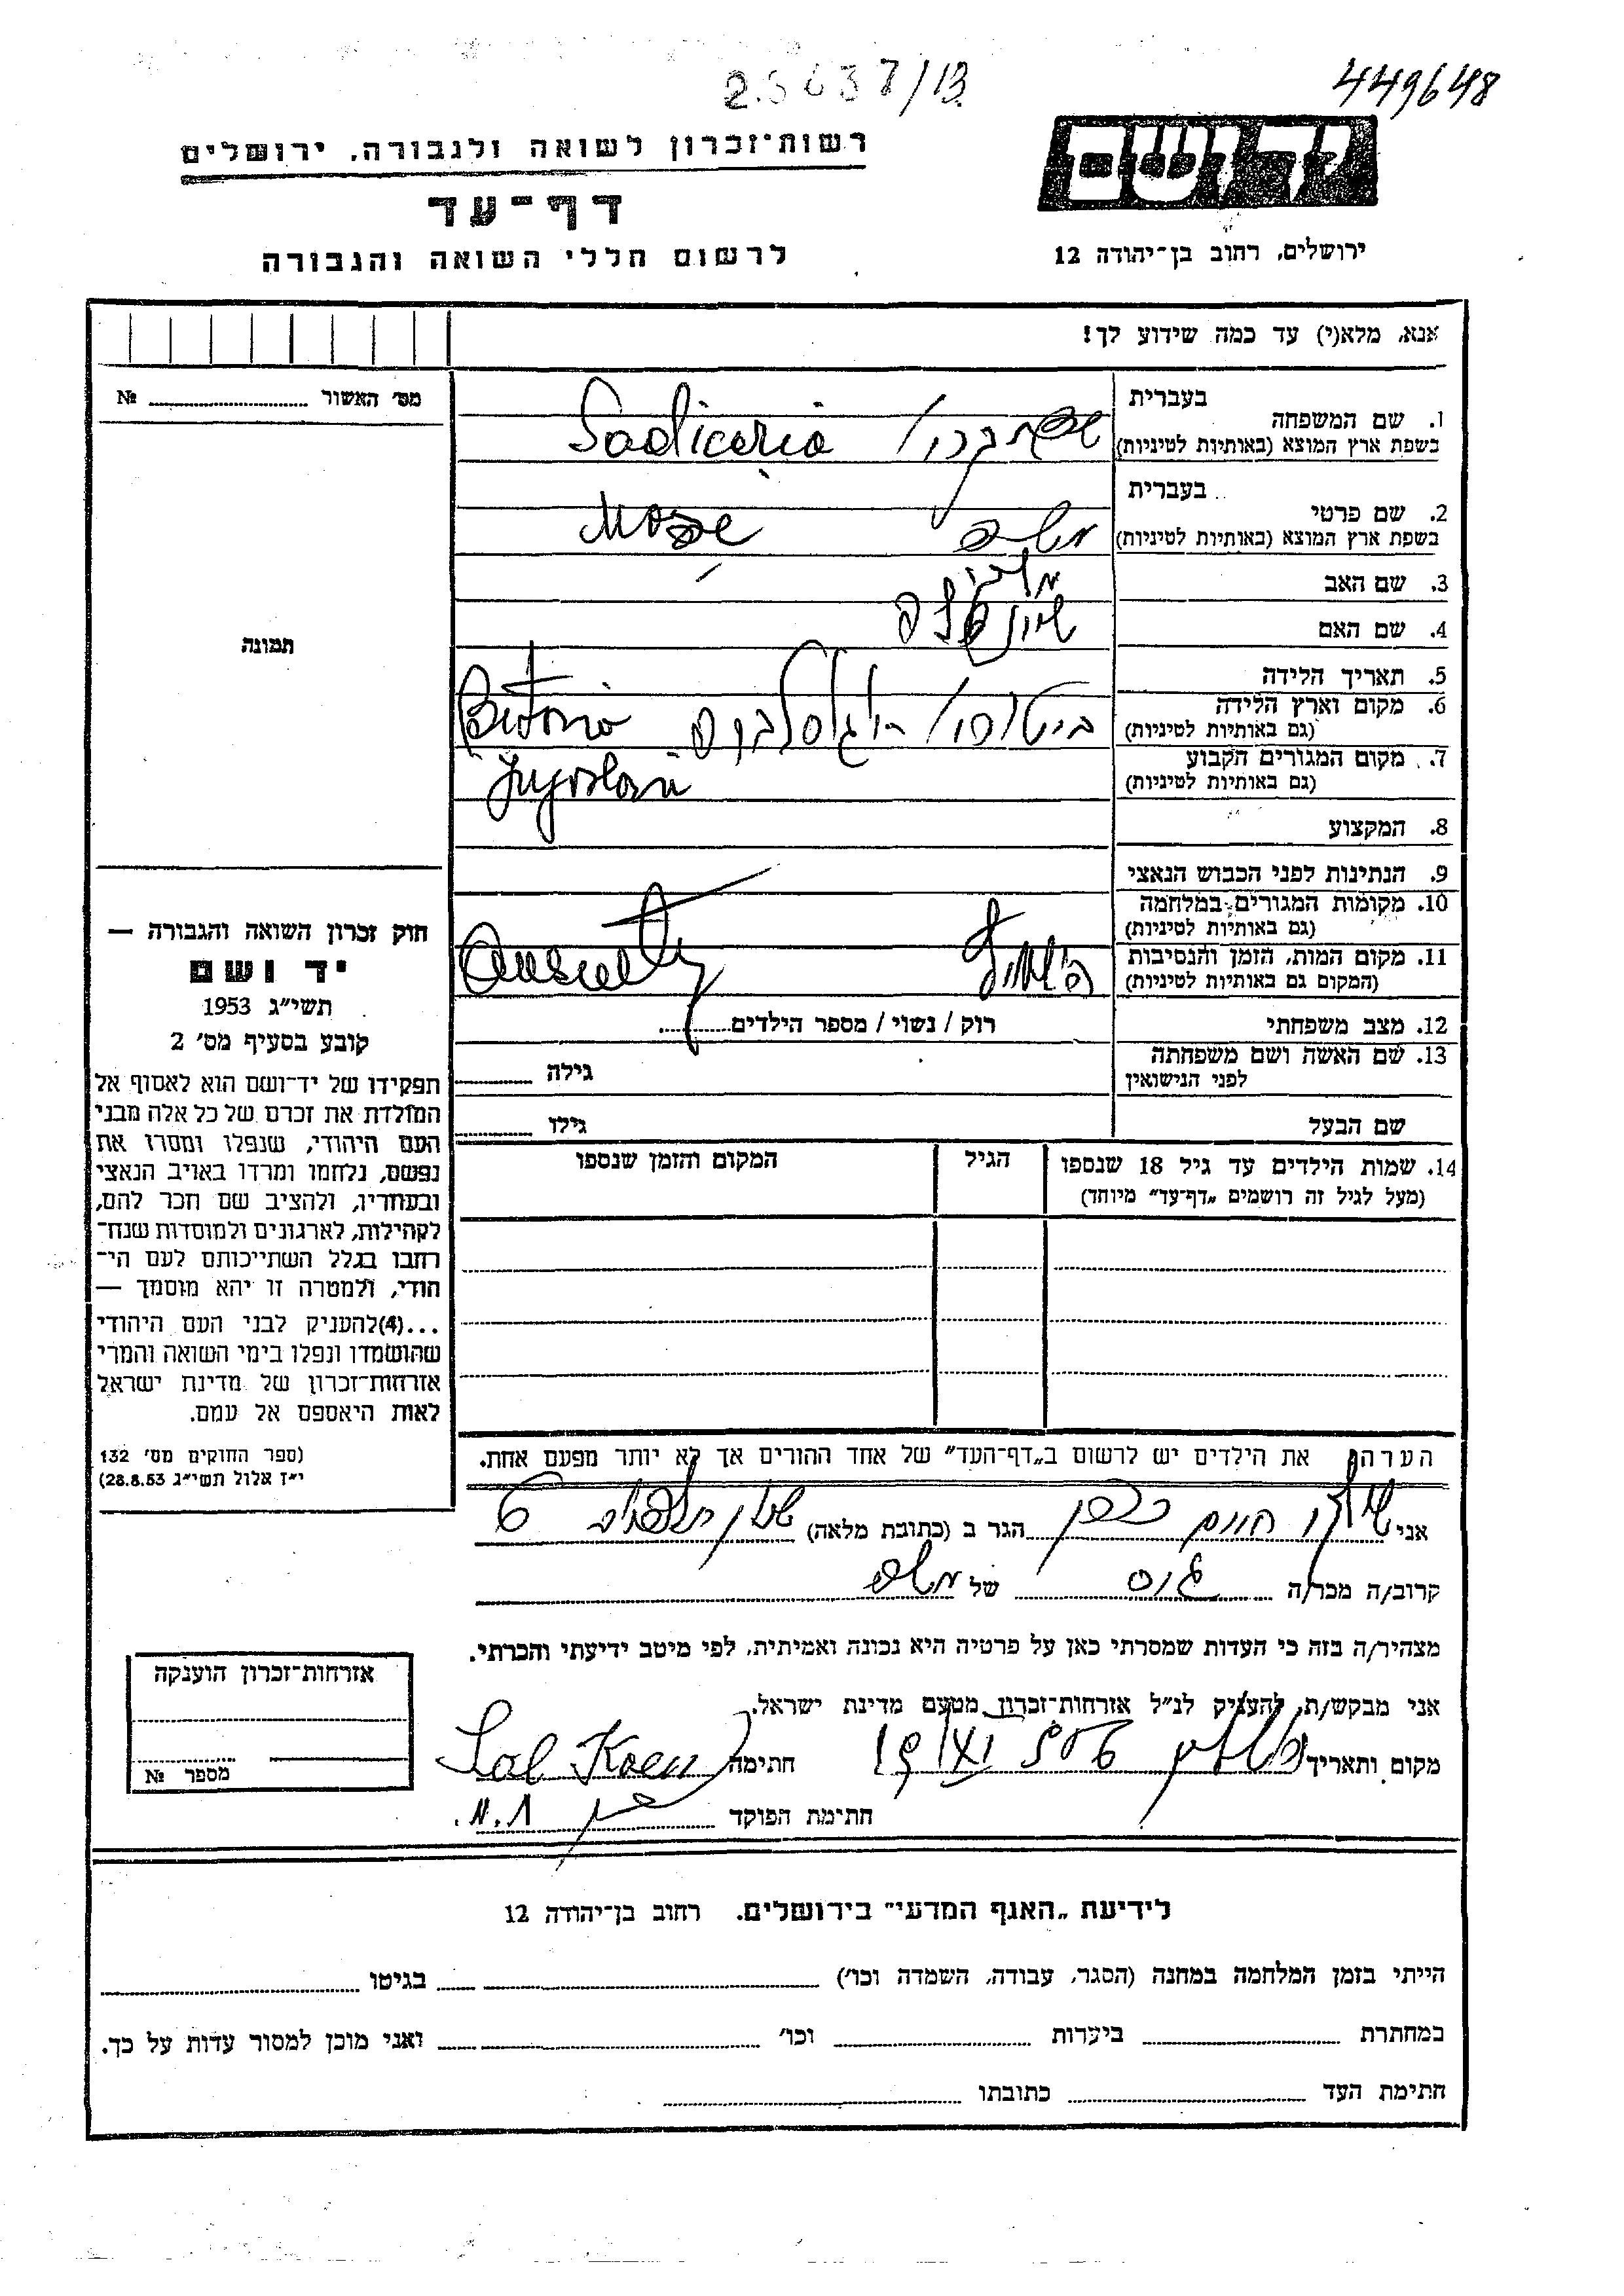 449648
רשות־זכרון לשואה ולגבורה, ירושלים
דף־עד
לרשום חללי השואה והגבורה
יד ושם
ירושלים, רחוב בן־יהודה 12
אנא, מלא(י) עד כמה שידוע לך!
מס׳ האשור № 
תמונה
1. שם המשפחה
בעברית
בשפת ארץ המוצא (באותיות לטיניות)
Sadicario
2. שם פרטי
בעברית
בשפת ארץ המוצא (באותיות לטיניות)
משה
Mose
3. שם האב
4. שם האם
5. תאריך הלידה
6. מקום וארץ הלידה
(גם באותיות לטיניות)
ביטולי יוגוסלביה
7. מקום המגורים הקבוע
(גם באותיות לטיניות)
8. המקצוע
9. הנתינות לפני הכבוש הנאצי
10. מקומות המגורים במלחמה
(גם באותיות לטיניות)
11. מקום המות, הזמן והנסיבות
(המקום גם באותיות לטיניות)
12. מצב משפחתי
רוק / נשוי / מספר הילדים
13. שם האשה ושם משפחתה
לפני הנישואין
גילה
שם הבעל
גילו
14. שמות הילדים עד גיל 18 שנספו
(מעל לגיל זה רושמים „דף־עד״ מיוחד)
הגיל
המקום והזמן שנספו
חוק זכרון השואה והגבורה —
יד ושם
תשי״ג 1953
קובע בסעיף מס׳ 2
תפקידו של יד־ושם הוא לאסוף אל
המולדת את זכרם של כל אלה מבני
העם היהודי, שנפלו ומסרו את
נפשם, נלחמו ומרדו באויב הנאצי
ובעוזריו, ולהציב שם וזכר להם,
לקהילות, לארגונים ולמוסדות שנח־
רבו בגלל השתייכותם לעם הי־
הודי, ולמטרה זו יהא מוסמך —
...(4)להעניק לבני העם היהודי
שהושמדו ונפלו בימי השואה והמרי
אזרחות־זכרון של מדינת ישראל
לאות היאספם אל עמם.
(ספר החוקים מס׳ 132
י״ז אלול תשי״ג 28.8.53)
הערה, את הילדים יש לרשום ב„דף־העד״ של אחד ההורים אך לא יותר מפעם אחת.
אני חיים כהן הגר ב (כתובת מלאה) 6
קרוב/ה מכר/ה של משה
מצהיר/ה בזה כי העדות שמסרתי כאן על פרטיה היא נכונה ואמיתית, לפי מיטב ידיעתי והכרתי.
אני מבקש/ת, להעניק לנ״ל אזרחות־זכרון מטעם מדינת ישראל.
מקום ותאריך חתימה Koen
חתימת הפוקד
אזרחות־זכרון הוענקה
מספר №
לידיעת „האגף המדעי״ בירושלים. רחוב בן־יהודה 12
הייתי בזמן המלחמה במחנה (הסגר, עבודה, השמדה וכו׳) בגיטו
במחתרת ביערות וכו׳ ואני מוכן למסור עדות על כך.
חתימת העד כתובתו